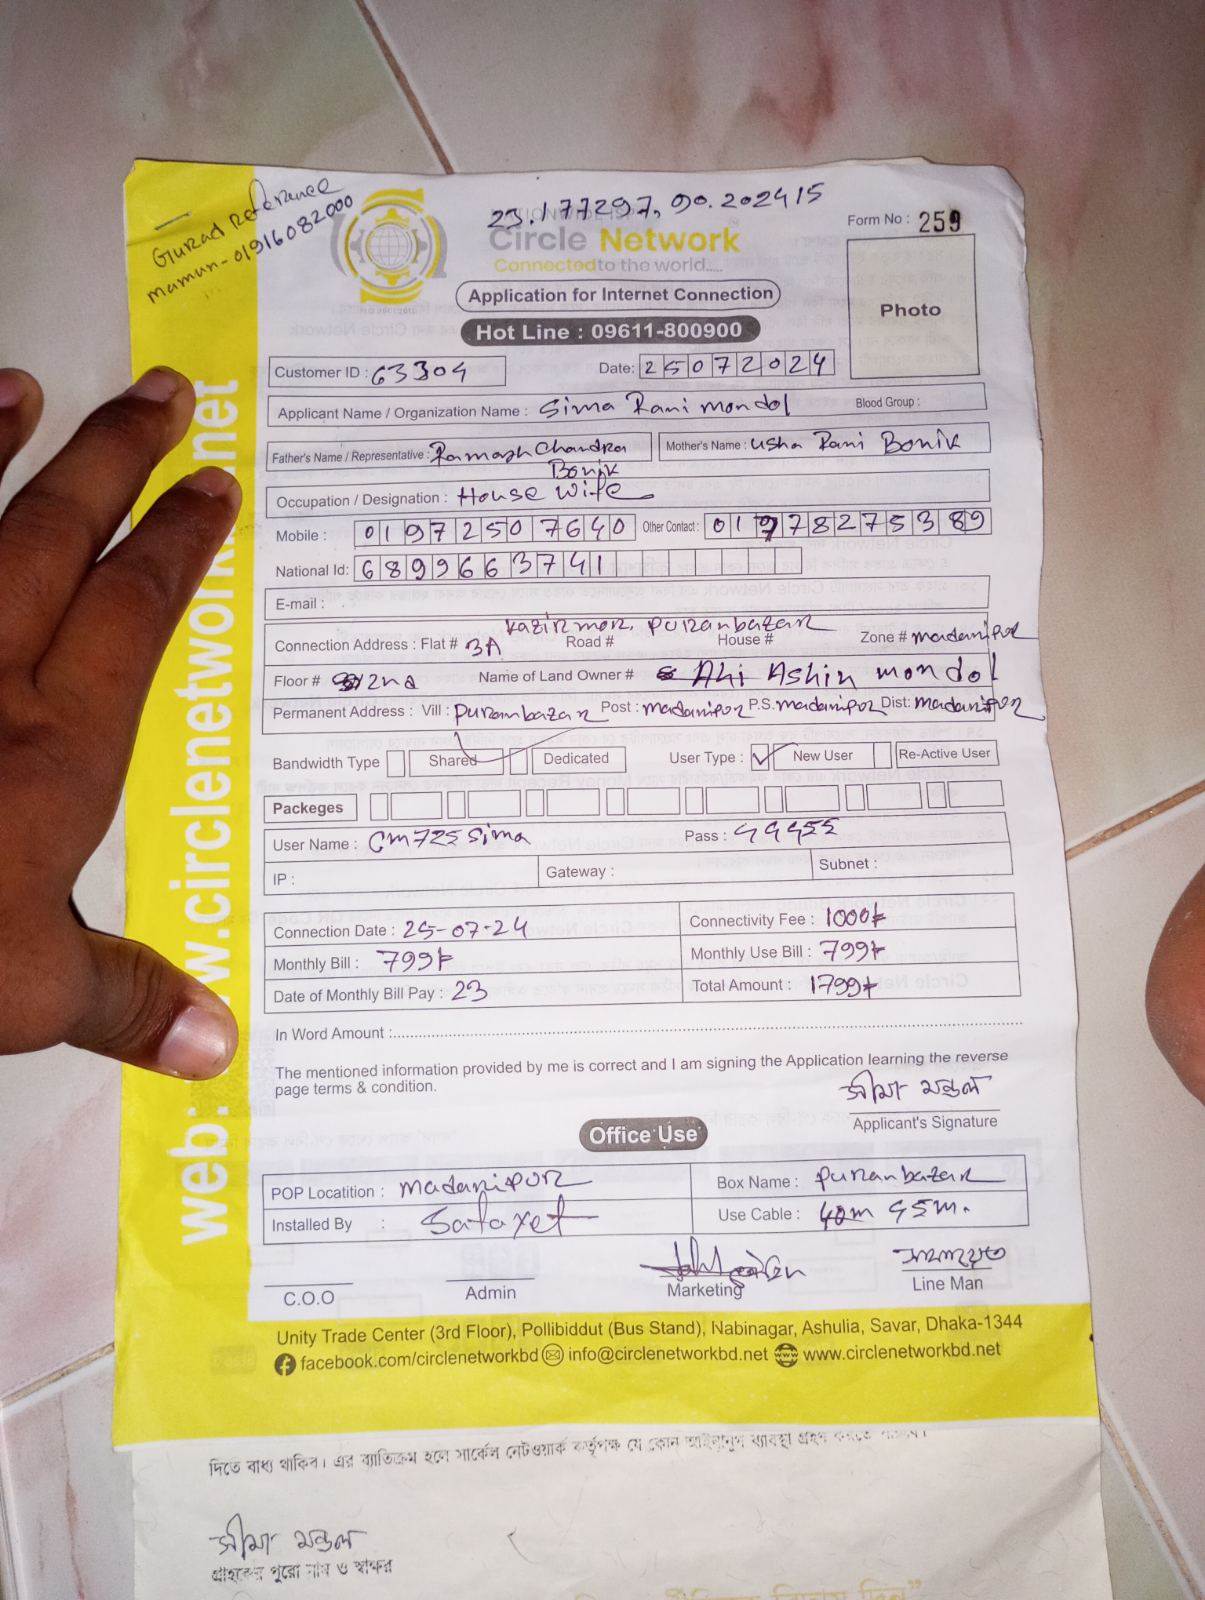 Gurad Reference
mamun-01916082000
23.177297, 90.202415
Circle Network
Connected to the world.....
Form No : 259
Photo
Application for Internet Connection
Hot Line : 09611-800900
Customer ID : 63304
Date: 25072024
Applicant Name / Organization Name : Sima Rani mondol
Blood Group :
Father's Name / Representative : Ramash Chandra Bonik
Mother's Name : Usha Rani Bonik
Occupation / Designation : House wife
Mobile : 01972507640 Other Contact : 01778275389
National Id: 6899663741
E-mail :
Kazir mor, Puranbazar
Connection Address : Flat # 3A Road # House # Zone # madaripur
Floor # 2nd Name of Land Owner # Ashin mondol
Permanent Address : Vill : Puranbazar Post : madaripur P.S. madaripur Dist: madaripur
Bandwidth Type Shared Dedicated User Type : New User Re-Active User
Packeges
User Name : Cm725sima Pass : 44455
IP : Gateway : Subnet :
Connection Date : 25-07-24 Connectivity Fee : 1000/-
Monthly Bill : 799/- Monthly Use Bill : 799/-
Date of Monthly Bill Pay : 23 Total Amount : 1799/-
In Word Amount :
The mentioned information provided by me is correct and I am signing the Application learning the reverse
page terms & condition.
সীমা মন্ডল
Applicant's Signature
Office Use
POP Locatition : madaripur Box Name : Puranbazar
Installed By : Safayet Use Cable : 40m 45m.
C.O.O Admin Marketing Line Man
Unity Trade Center (3rd Floor), Pollibiddut (Bus Stand), Nabinagar, Ashulia, Savar, Dhaka-1344
facebook.com/circlenetworkbd info@circlenetworkbd.net www.circlenetworkbd.net
দিতে বাধ্য থাকিব। এর ব্যতিক্রম হলে সার্কেল নেটওয়ার্ক কর্তৃপক্ষ যে কোন আইনানুগ ব্যবস্থা গ্রহণ
সীমা মন্ডল
গ্রাহকের পুরো নাম ও স্বাক্ষর